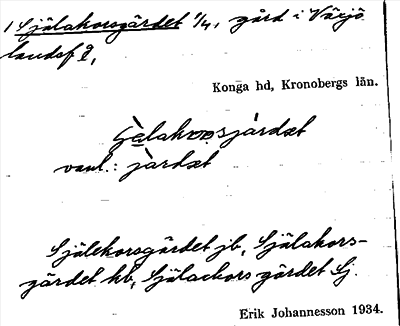 1 Själakorsgärdet 1/4, gård i Växjö
landsf
Konga hd, Kronobergs län.
vanl.: jàrdæt
Själekorsgärdet jb, Själakors-
gärdet kb, Själackors gärdet Sj.
Erik Johannesson 1934.